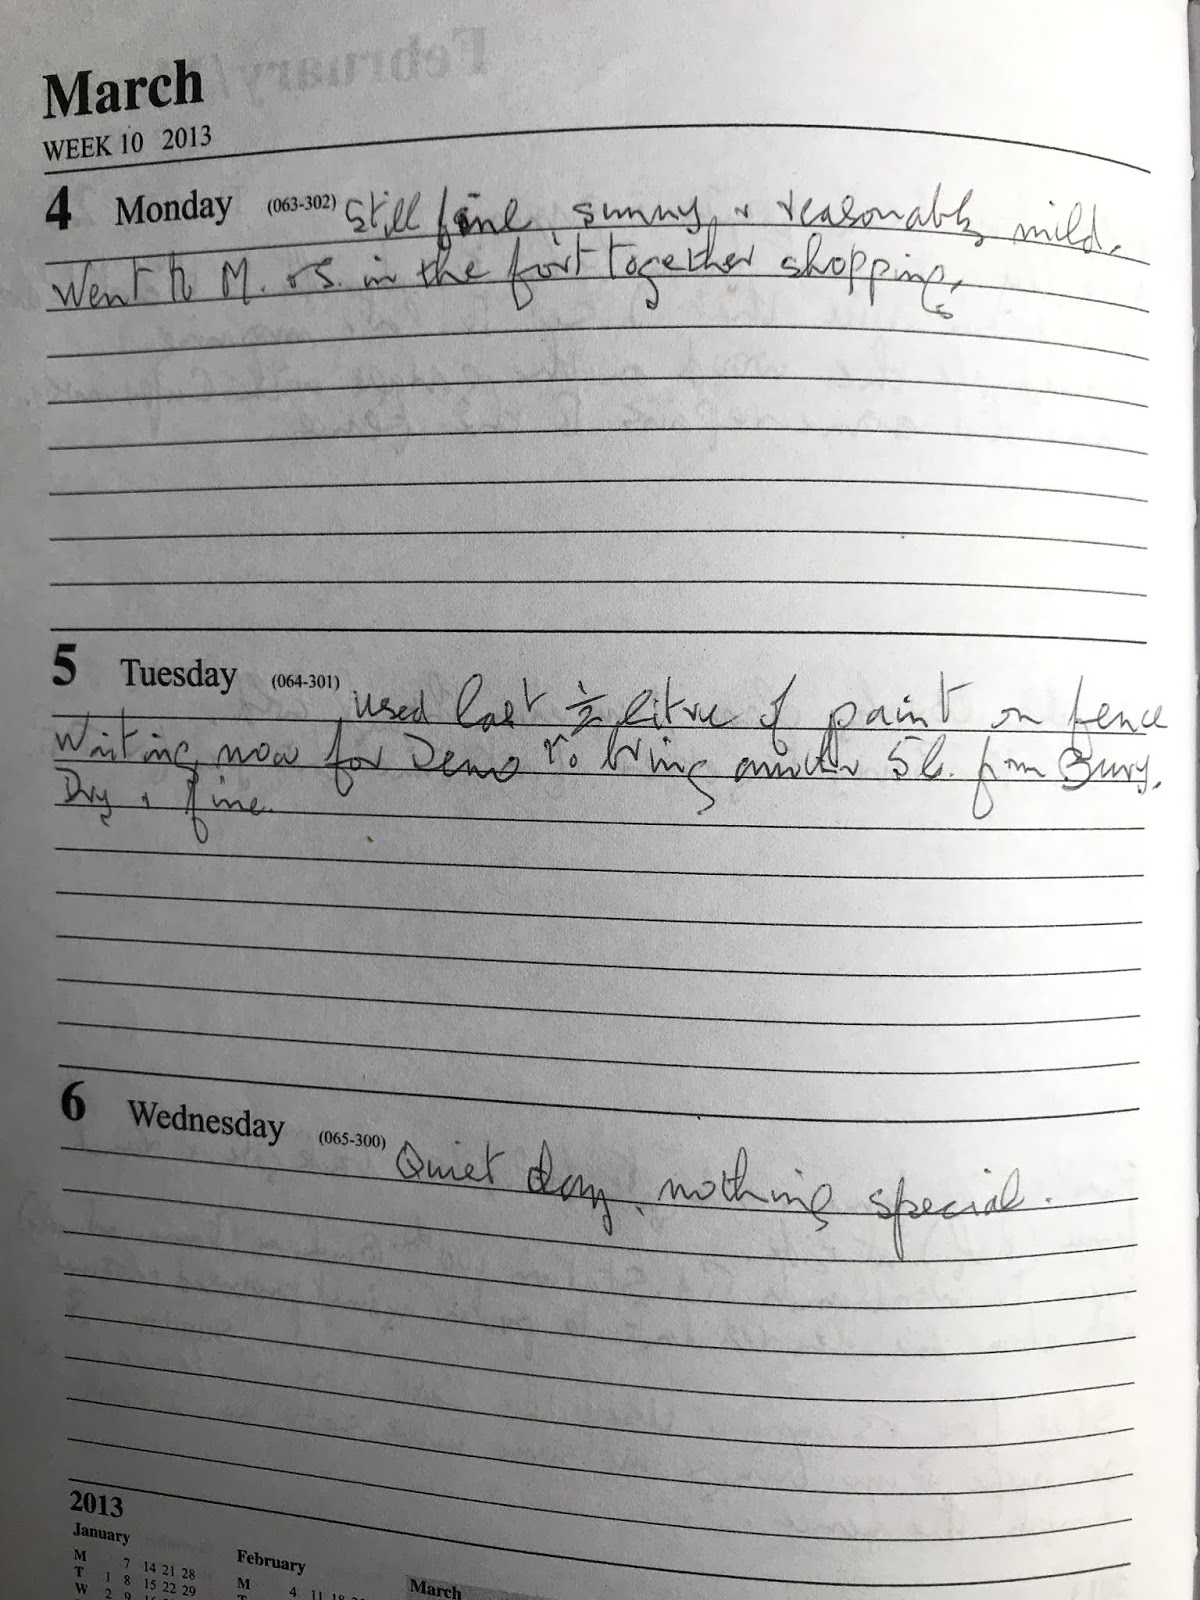 March
WEEK 10 2013
4 Monday (063-302) Still fine, sunny, & reasonably mild.
Went to M. & S. in the fort together shopping.
5 Tuesday (064-301) used last ½ litre of paint on fence
Waiting now for Demo to bring another 5l. from Bury.
Dry & fine.
6 Wednesday (065-300) Quiet day, nothing special.
2013
January
M 7 14 21 28
T 1 8 15 22 29
W 2 9
February
M 4 11 18
March